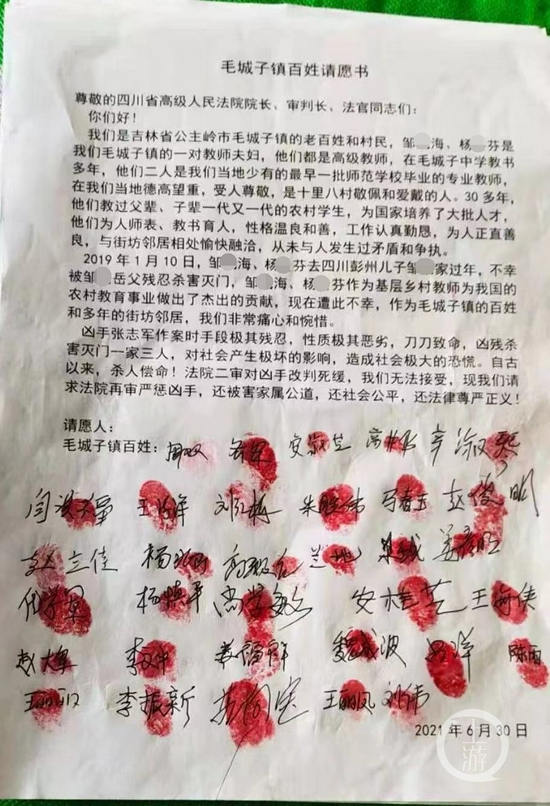 毛城子镇百姓请愿书
尊敬的四川省高级人民法院院长、审判长、法官同志们:
你们好!
我们是吉林省公主岭市毛城子镇的老百姓和村民,邹 海、杨 芬是
我们毛城子镇的一对教师夫妇,他们都是高级教师,在毛城子中学教书
多年,他们二人是我们当地少有的最早一批师范学校毕业的专业教师,
在我们当地德高望重,受人尊敬,是十里八村敬佩和爱戴的人。30 多年,
他们教过父辈、子辈一代又一代的农村学生,为国家培养了大批人才,
他们为人师表、教书育人,性格温良和善,工作认真勤恳,为人正直善
良,与街坊邻居相处愉快融洽,从未与人发生过矛盾和争执。
2019 年 1 月 10 日,邹 海、杨 芬去四川彭州儿子邹 家过年,不幸
被邹 岳父残忍杀害灭门,邹 海、杨 芬作为基层乡村教师为我国的
农村教育事业做出了杰出的贡献,现在遭此不幸,作为毛城子镇的百姓
和多年的街坊邻居,我们非常痛心和惋惜。
凶手张志军作案时手段极其残忍,性质极其恶劣,刀刀致命,凶残杀
害灭门一家三人,对社会产生极坏的影响,造成社会极大的恐慌。自古
以来,杀人偿命!法院二审对凶手改判死缓,我们无法接受,现我们请
求法院再审严惩凶手,还被害家属公道,还社会公平,还法律尊严正义!
请愿人:
毛城子镇百姓: 辛淑熙
刘红梅 朱晓伟 马春玉 赵俊明
赵立佳
安桂芝 王海侠
赵大军 李文冲 魏成波
王丽丽 李振新 王丽凤 刘伟
2021 年 6 月 30 日
上游